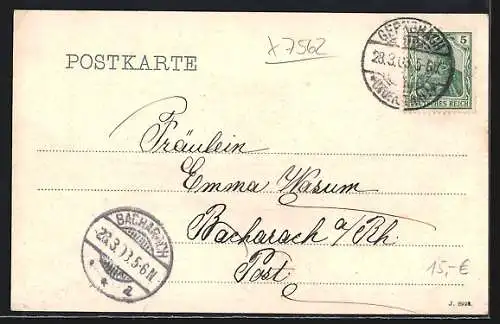 x 7562
GERNSBACH
28.3.03.5-6N.
5
DEUTSCHES REICH
POSTKARTE
Fräulein
Emma Wasum
Bacharach a/Rh.
Post
BACHARACH
3.03.5-6N
a
15,-€